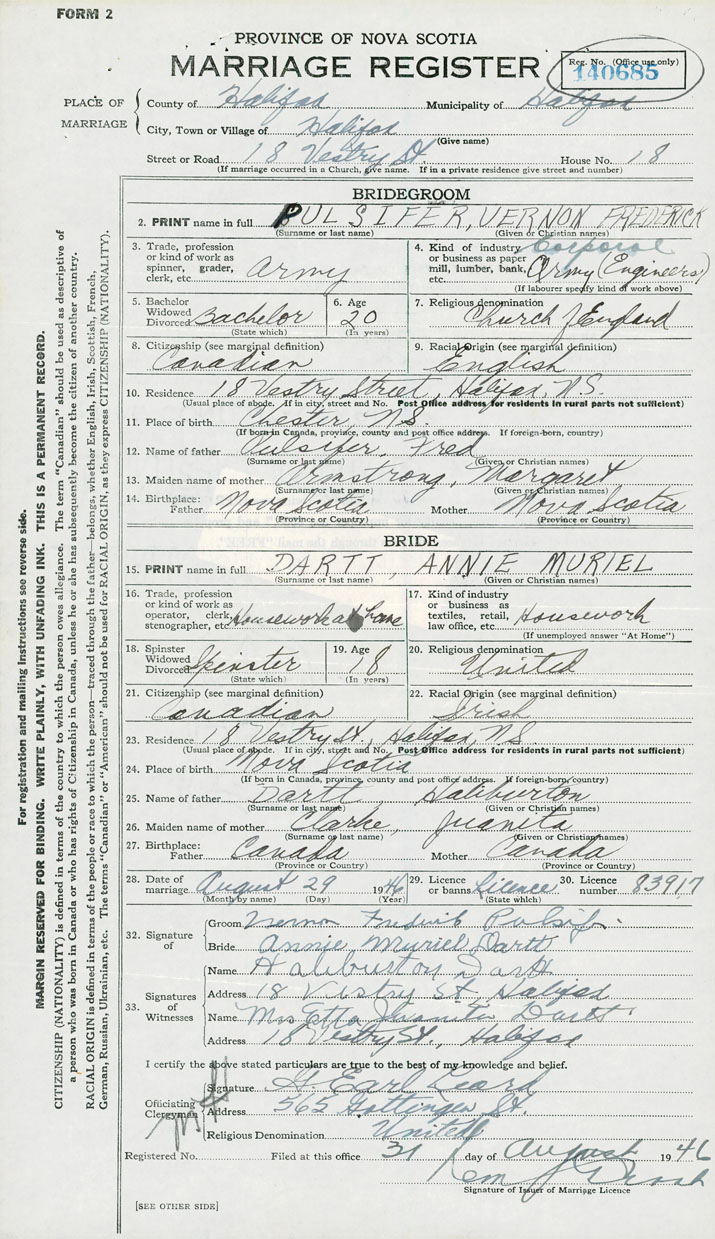 FORM 2
PROVINCE OF NOVA SCOTIA
MARRIAGE REGISTER
Reg. No. (Office use only)
140685
PLACE OF MARRIAGE
County of Halifax Municipality of Halifax
City, Town or Village of Halifax
(Give name)
Street or Road 18 Vestry St. House No. 18
(If marriage occurred in a Church, give name. If in a private residence give street and number)
BRIDEGROOM
2. PRINT name in full PULSIFER, VERNON FREDERICK
(Surname or last name) (Given or Christian names)
3. Trade, profession or kind of work as spinner, grader, clerk, etc. Army
4. Kind of industry or business as paper mill, lumber, bank, etc. Corporal Army (Engineers)
(If labourer specify kind of work above)
5. Bachelor Widowed Divorced Bachelor
(State which)
6. Age 20
(In years)
7. Religious denomination
Church of England
8. Citizenship (see marginal definition)
Canadian
9. Racial Origin (see marginal definition)
English
10. Residence 18 Vestry Street, Halifax, N.S.
(Usual place of abode. If in city, street and No. Post Office address for residents in rural parts not sufficient)
11. Place of birth Chester, N.S.
(If born in Canada, province, county and post office address. If foreign-born, country)
12. Name of father Pulsifer, Fred
(Surname or last name) (Given or Christian names)
13. Maiden name of mother Armstrong, Margaret
(Surname or last name) (Given or Christian names)
14. Birthplace: Father Nova Scotia Mother Nova Scotia
(Province or Country) (Province or Country)
BRIDE
15. PRINT name in full DARTT, ANNIE MURIEL
(Surname or last name) (Given or Christian names)
16. Trade, profession or kind of work as operator, clerk, stenographer, etc. Housework at home
17. Kind of industry or business as textiles, retail, law office, etc. Housework
(If unemployed answer "At Home")
18. Spinster Widowed Divorced Spinster
(State which)
19. Age 18
(In years)
20. Religious denomination
United
21. Citizenship (see marginal definition)
Canadian
22. Racial Origin (see marginal definition)
Irish
23. Residence 18 Vestry St., Halifax, N.S.
(Usual place of abode. If in city, street and No. Post Office address for residents in rural parts not sufficient)
24. Place of birth Nova Scotia
(If born in Canada, province county and post office address. If foreign-born, country)
25. Name of father Dartt, Haliburton
(Surname or last name) (Given or Christian names)
26. Maiden name of mother Clarke, Juanita
(Surname or last name) (Given or Christian names)
27. Birthplace: Father Canada Mother Canada
(Province or Country) (Province or Country)
28. Date of marriage August 29 1946
(Month by name) (Day) (Year)
29. Licence or banns Licence
(State which)
30. Licence number 83917
32. Signature of
Groom Vernon Fredrick Pulsifer
Bride Annie Muriel Dartt
33. Signatures of Witnesses
Name Haliburton Dartt
Address 18 Vestry St Halifax
Name Mrs Etta Juanita Dartt
Address 18 Vestry St., Halifax
I certify the above stated particulars are true to the best of my knowledge and belief.
Officiating Clergyman
Signature H. Earl Leard
Address 565 Gottingen St.
Religious Denomination United
Registered No. Filed at this office 31 day of August 1946
Signature of Issuer of Marriage Licence
[SEE OTHER SIDE]
For registration and mailing instructions see reverse side.
MARGIN RESERVED FOR BINDING. WRITE PLAINLY, WITH UNFADING INK. THIS IS A PERMANENT RECORD.
CITIZENSHIP (NATIONALITY) is defined in terms of the country to which the person owes allegiance. The term "Canadian" should be used as descriptive of
a person who was born in Canada or who has rights of Citizenship in Canada, unless he or she has subsequently become the citizen of another country.
RACIAL ORIGIN is defined in terms of the people or race to which the person—traced through the father—belongs, whether English, Irish, Scottish, French,
German, Russian, Ukrainian, etc. The terms "Canadian" or "American" should not be used for RACIAL ORIGIN, as they express CITIZENSHIP (NATIONALITY).